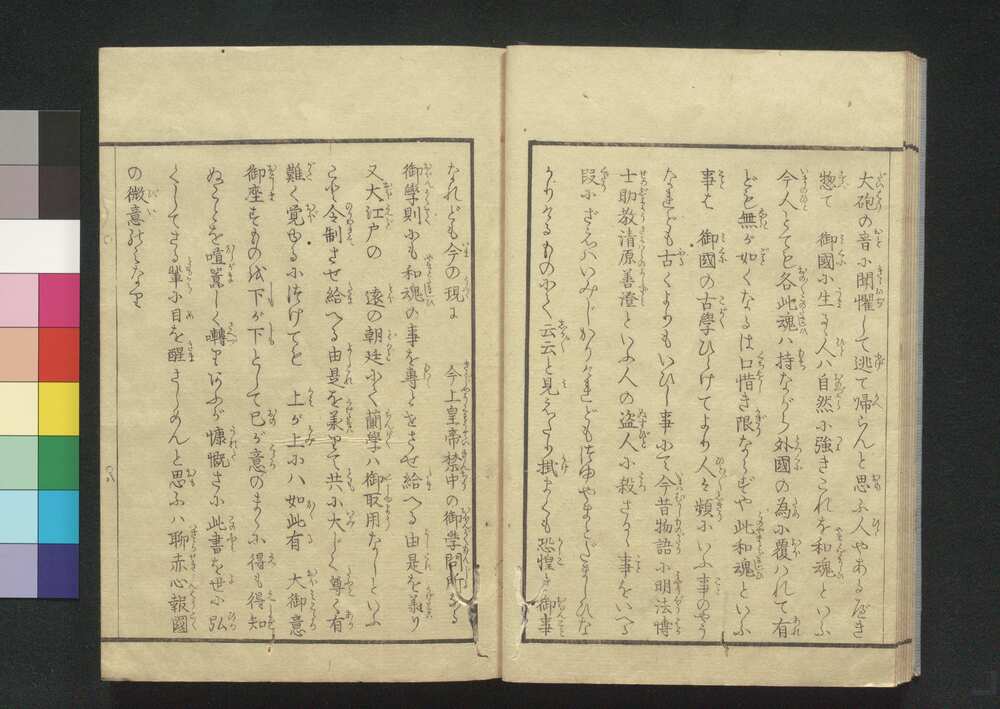 大砲の音小聞懼して逃て帰らんと思ふ人やあるべき
惣て 御國小生るゝ人ハ自然小強きこれを和魂といふ
今人とても各此魂ハ持ながら外國の為小覆ハれて有
ども無が如くなるは口惜き限ならずや此和魂といふ
事も 御國の古學ひらけてより人々頻小いふ事のやう
なれども古くよりもいひし事小て今昔物語小明法博
士助教清原善澄といふ人の盗人小殺さるゝ事をいへる
段小ざえハいみじかりけれどもつゆやまとだましひな
かりけるものにて云云と見えたり掛まくも恐惶き御事
なれども今の現よ 今上皇帝禁中の御學問所なる
御學則小も和魂の事を専とせさせ給へる由是を羲り
又大江戸の 遠の朝廷にて蘭學ハ御取用なしといふ
こと令制させ給へる由是を羲りて共小大じく尊く有
難く覚ゆる小つけても 上が上小ハ如此有 大御意
御座ますものを下が下として己が意のまゝ小得も得知
ぬことを喧嚣しく囀りいふが慷慨さ小此書を世小弘
くしてさる輩小目を醒さしめんと思ふハ聊赤心報國
の微意なり